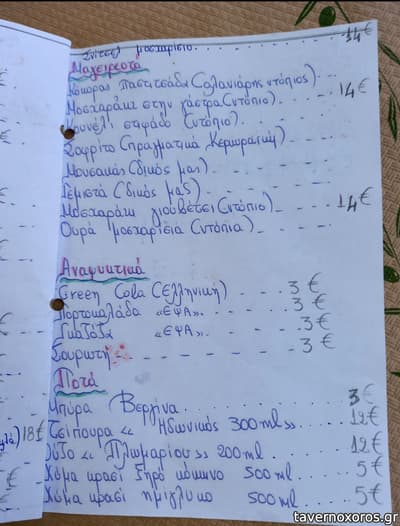 Σνίτσελ μοσχαρίσιο. 14€
Μαγειρευτά
Κόκορας Παστιτσάδα (Ολανιάρης ντόπιος).
Μοσχαράκι στην γάστρα (ντόπιο). 14€
Κουνέλι στιφάδο (ντόπιο).
Σοφρίτο (πραγματικά Κερκυραϊκή)
Μουσακάς (δικός μας)
Γεμιστά (δικός μας)
Μοσχαράκι γιουβέτσι (ντόπιο) 14€
Ουρά μοσχαρίσια (ντόπια)
Αναψυκτικά
Green Cola (Ελληνική) 3€
Πορτοκαλάδα «ΕΨΑ». 3€
Γκαζόζα «ΕΨΑ». 3€
Σουρωτή 3€
Ποτά
Μπύρα Βεργίνα 3€
Τσίπουρο «Ηδωνικός 300ml» 12€
18€ Ούζο «Πλωμαρίου» 200ml 12€
Χύμα κρασί ξηρό κόκκινο 500ml 5€
Χύμα κρασί ημίγλυκο 500ml 5€
tavernoxoros.gr